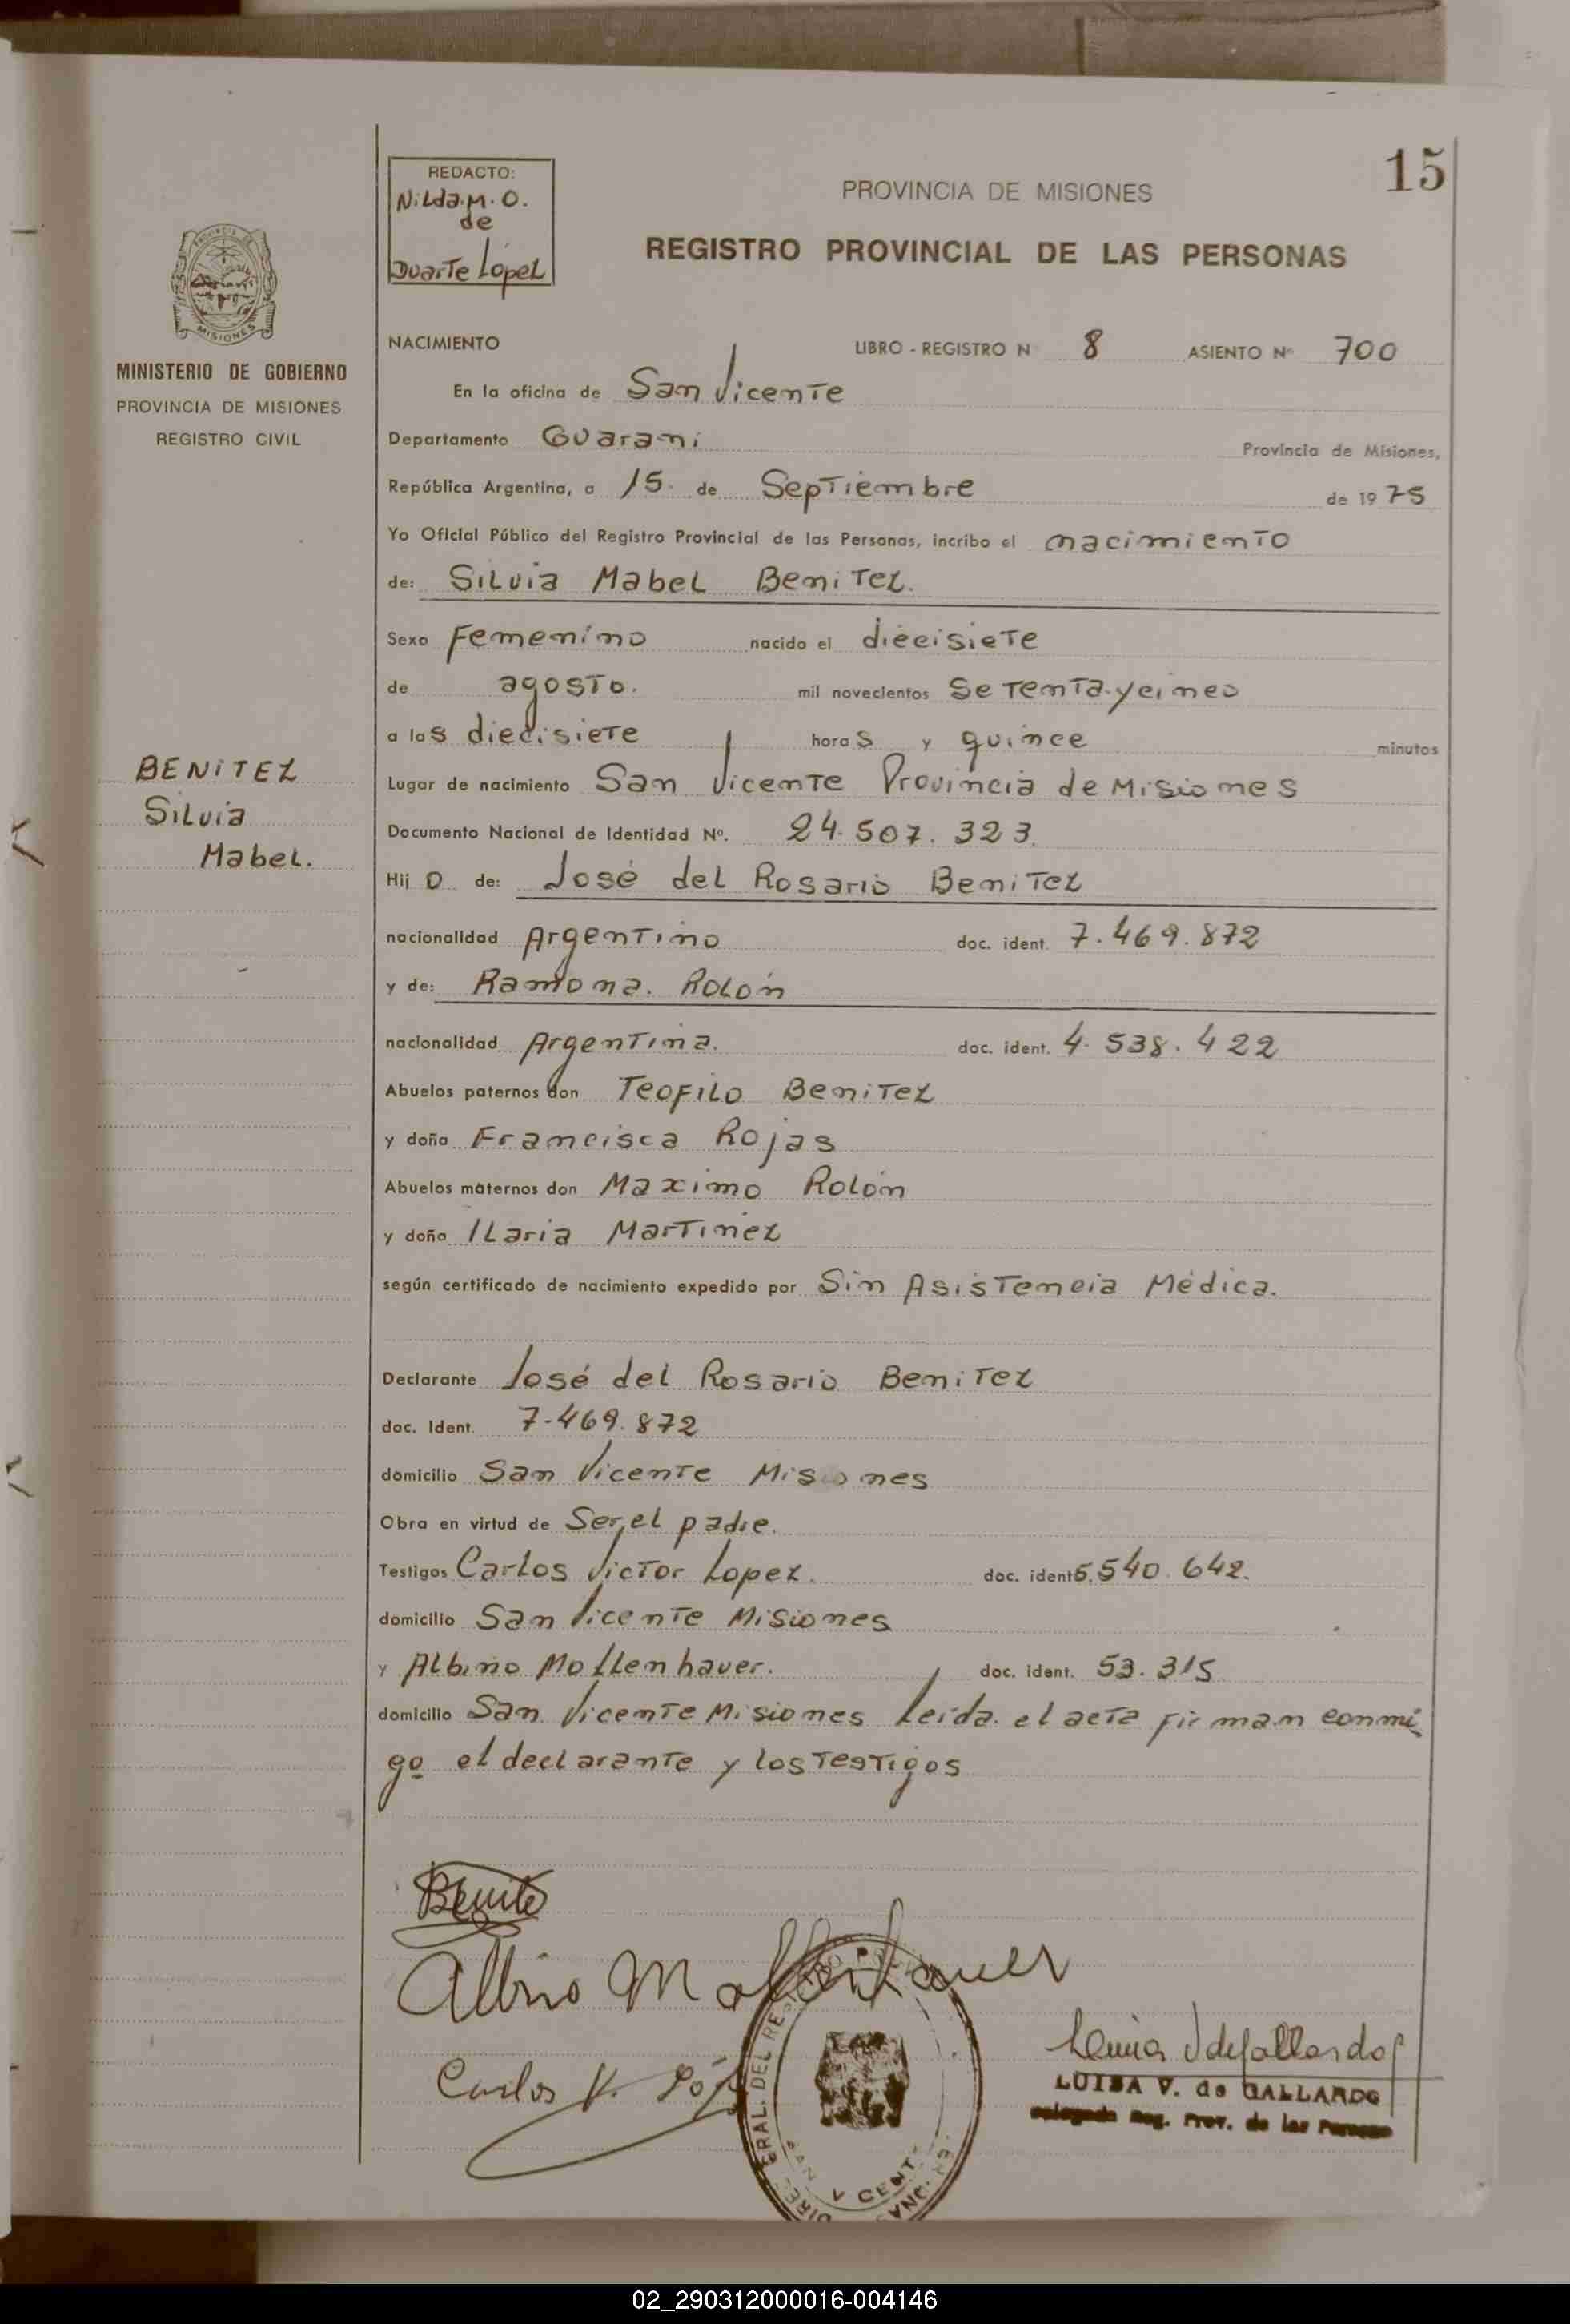 15
REDACTO:
Nilda.M.O.
de
Duarte Lopez
PROVINCIA DE MISIONES
REGISTRO PROVINCIAL DE LAS PERSONAS
MISIONES
MINISTERIO DE GOBIERNO
PROVINCIA DE MISIONES
REGISTRO CIVIL
NACIMIENTO LIBRO - REGISTRO N 8 ASIENTO Nº 700
En la oficina de San Vicente
Departamento Guarani Provincia de Misiones,
República Argentina, a 15. de Septiembre de 1975
Yo Oficial Público del Registro Provincial de las Personas, incribo el nacimiento
de: Silvia Mabel Benitez.
Sexo Femenino nacido el diecisiete
de agosto. mil novecientos setenta y cinco
a las diecisiete horas y quince minutos
Lugar de nacimiento San Vicente Provincia de Misiones
Documento Nacional de Identidad Nº. 24.507.323.
BENITEZ
Silvia
Mabel.
Hij o de: José del Rosario Benitez
nacionalidad Argentino doc. ident. 7.469.872
y de: Ramona. Rolón
nacionalidad Argentina. doc. ident. 4.538.422
Abuelos paternos don Teofilo Benitez
y doña Francisca Rojas
Abuelos maternos don Maximo Rolón
y doña Ilaria Martinez
según certificado de nacimiento expedido por Sin Asistencia Médica.
Declarante José del Rosario Benitez
doc. Ident. 7.469.872
domicilio San Vicente Misiones
Obra en virtud de Ser el padre.
Testigos Carlos Victor Lopez. doc. ident 5.540.642.
domicilio San Vicente Misiones
y Albino Mollenhauer. doc. ident. 53.315
domicilio San Vicente Misiones Leida. el acta firman conmi
go el declarante y los testigos
Albino Mollenhauer
Carlos V.
Luisa V de Gallardo
LUISA V. de GALLARDO
Reg. Prov. de las
02_290312000016-004146